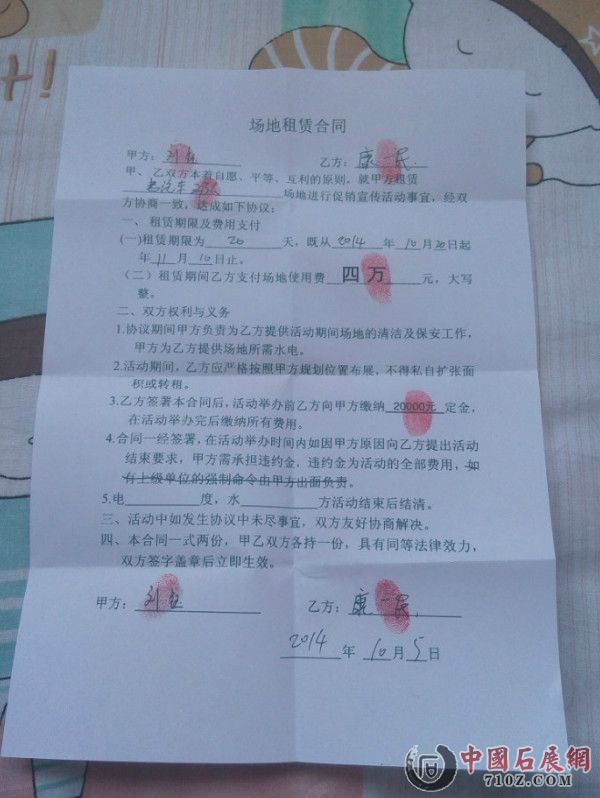 场地租赁合同
甲方：刘钰 乙方：康一民
甲、乙双方本着自愿、平等、互利的原则，就甲方租赁
老汽车 场地进行促销宣传活动事宜，经双
方协商一致，达成如下协议：
一、租赁期限及费用支付
(一)租赁期限为 20 天，既从 2014 年 10 月 20 日起
年 11 月 10 日止。
（二）租赁期间乙方支付场地使用费 四万 元，大写
整。
二、双方权利与义务
1.协议期间甲方负责为乙方提供活动期间场地的清洁及保安工作，
甲方为乙方提供场地所需水电。
2.活动期间，乙方应严格按照甲方规划位置布展，不得私自扩张面
积或转租。
3.乙方签署本合同后，活动举办前乙方向甲方缴纳 20000元 定金，
在活动举办完后缴纳所有费用。
4.合同一经签署，在活动举办时间内如因甲方原因向乙方提出活动
结束要求，甲方需承担违约金，违约金为活动的全部费用，如
有上级单位的强制命令由甲方出面负责。
5.电 度，水 方活动结束后结清。
三、活动中如发生协议中未尽事宜，双方友好协商解决。
四、本合同一式两份，甲乙双方各持一份，具有同等法律效力，
双方签字盖章后立即生效。
甲方：刘钰 乙方：康一民
2014 年 10 月 5 日
中國石展網
710Z.COM